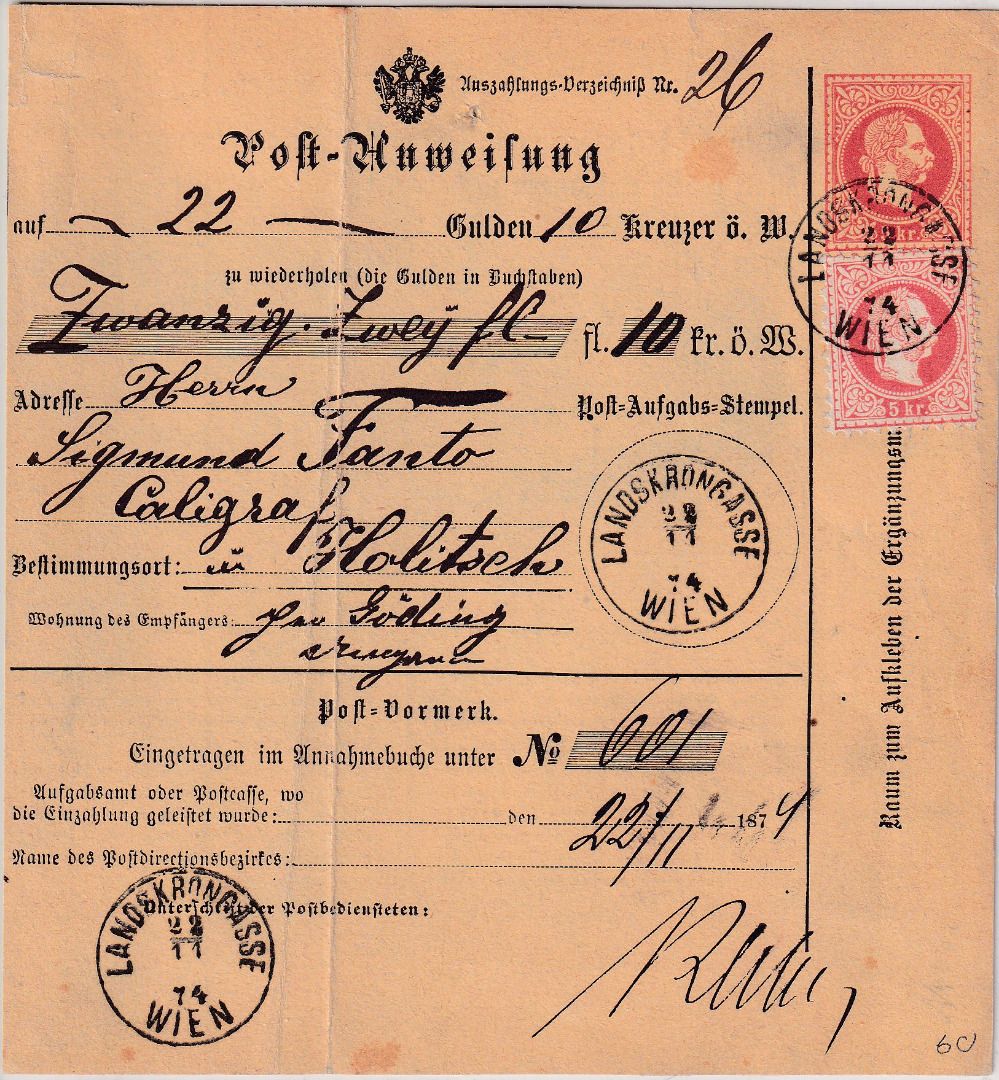 Auszahlungs-Verzeichniß Nr. 26
Post-Anweisung
auf 22 Gulden 10 Kreuzer ö. W.
zu wiederholen (die Gulden in Buchstaben)
Zwanzig. Zwey fl- fl. 10 kr. ö. W.
Adresse Herrn
Post-Aufgabs-Stempel.
Sigmund Fanto
Caligraf
Bestimmungsort: in Holitsch
Wohnung des Empfängers: per Göding
LANDSKRONGASSE
22
11
74
WIEN
Post-Vormerk.
Eingetragen im Annahmebuche unter No 601
Aufgabsamt oder Postcasse, wo
die Einzahlung geleistet wurde: den 22/11 1874
Name des Postdirectionsbezirkes:
Unterschrift der Postbediensteten:
LANDSKRONGASSE
22
11
74
WIEN
kr.
LANDSKRONGASSE
22
11
74
WIEN
5 kr.
Raum zum Aufkleben der Ergänzungsm
60